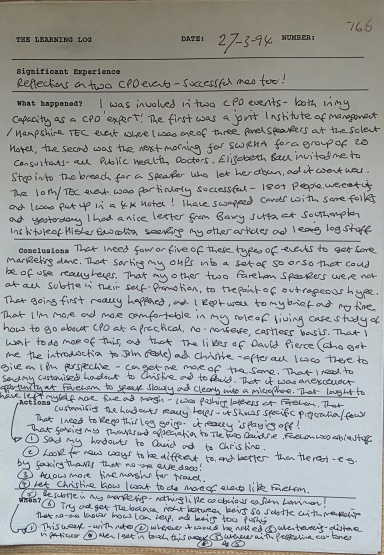 766
THE LEARNING LOG DATE: 27-3-94 NUMBER:
Significant Experience
Reflections on two CPD events - successful ones too!
What happened? I was involved in two CPD events - both in my
capacity as a CPD expert! The first was a joint Institute of Management
/ Hampshire TEC event where I was one of three panel speakers at the Solent
Hotel, the second was the next morning for SWRHA for a group of 20
Consultants - all Public Health Doctors. Elizabeth Bell invited me to
step into the breach for a speaker who let her down, and it went well.
The IOM/TEC event was particularly successful - 180+ people were at it
and I was put up in a 4* Hotel! I have swapped cards with some folks
and yesterday I had a nice letter from Barry at Southampton
Institute of Higher Education seeking my other articles and learning log stuff
Conclusions That I need four or five of these types of events to get some
marketing done. That sorting my OHPs into a set of 50 or so that could
be of use really helps. That my other two Fareham speakers were not
at all subtle in their self-promotion, to the point of outrageous hype.
That going first really happened, and I kept well to my brief and my time
That I'm more and more comfortable in my role of living case study of
how to go about CPD at a practical, no-nonsense, costless basis. That I
want to do more of this, and that the likes of David Pierce (who got
me the introduction to John) and Christie - after all I was there to
give an I'm perspective - can get me more of the same. That I need to
send my customised handout to Christie and to David. That it was an excellent
opportunity at Fareham to speak slowly and clearly into a microphone. That I ought to
have left myself more time and margin - I was pushing lorries at Fareham. That
Actions customising the handout really helps - it shows specific preparation/focus
That I need to keep this log going - it really is paying off!
That saying my thanks and appreciation to the two Davids re. Fareham
① Send my handouts to David and to Christie.
② Look for new ways to be different to, and better than the rest - e.g.
by saying thanks that no-one else does!
③ Allow more time margins for travel.
④ Let Christie know I want to do more of events like Fareham
⑤ Be subtle in my marketing - nothing like so obvious as
When? ⑥ Try and get the balance right between being so subtle with marketing
that no-one knows how I can help, and being too pushy
① This week - with notes ② wherever it would be noticed ③ whenever distance
in particular ④ When I get in touch this week ⑤ whenever with prospective contacts
⑥ as ⑤